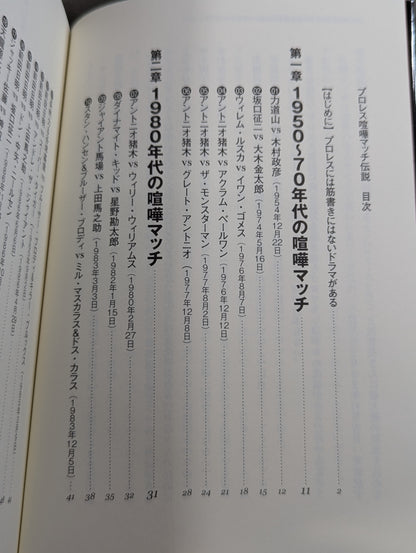 プロレス喧嘩マッチ伝説　目次
【はじめに】プロレスには筋書きにはないドラマがある……2
第一章　1950～70年代の喧嘩マッチ……11
01 力道山 vs 木村政彦（1954年12月22日）……12
02 坂口征二 vs 大木金太郎（1974年5月16日）……15
03 ウィレム・ルスカ vs イワン・ゴメス（1976年8月7日）……18
04 アントニオ猪木 vs アクラム・ペールワン（1976年12月12日）……21
05 アントニオ猪木 vs ザ・モンスターマン（1977年8月2日）……24
06 アントニオ猪木 vs グレート・アントニオ（1977年12月8日）……28
第二章　1980年代の喧嘩マッチ……31
07 アントニオ猪木 vs ウィリー・ウィリアムス（1980年2月27日）……32
08 ダイナマイト・キッド vs 星野勘太郎（1982年1月15日）……35
09 ジャイアント馬場 vs 上田馬之助（1983年3月3日）……38
10 スタン・ハンセン&ブルーザー・ブロディ vs ミル・マスカラス&ドス・カラス（1983年12月5日）……41